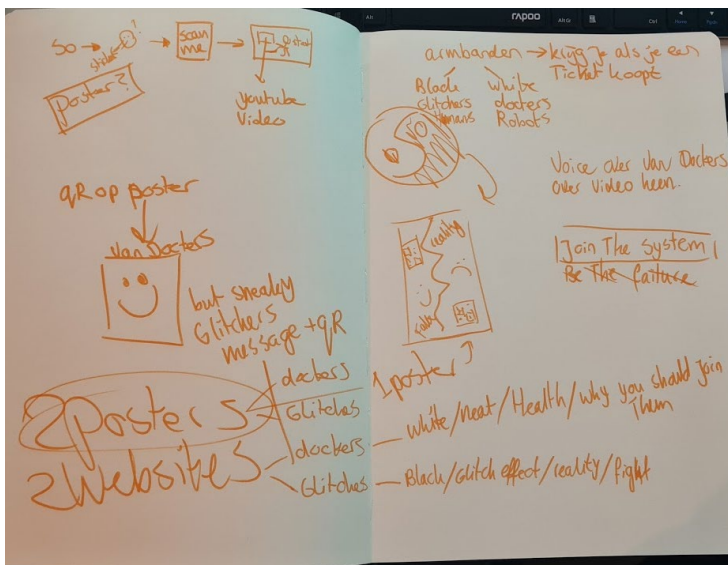 So →
sticker
?
→ scan me →
youtube
Video
poster?
qR op poster
van Docters
but sneaky
Glitchers
message + qR
2 posters
dockers
Glitches
2 Websites
dockers
Glitches
RAPOO
Alt
Alt Gr
Ctrl
Home
armbanden → krijg je als je een
Ticket koopt
Black
Glitchers
Humans
white
docters
Robots
Voice over van Dockers
over video heen.
reality
Join The System
Be The failure
1 poster
White/neat/Health/why you should join
Them
Black/Glitch effect/reality/fight